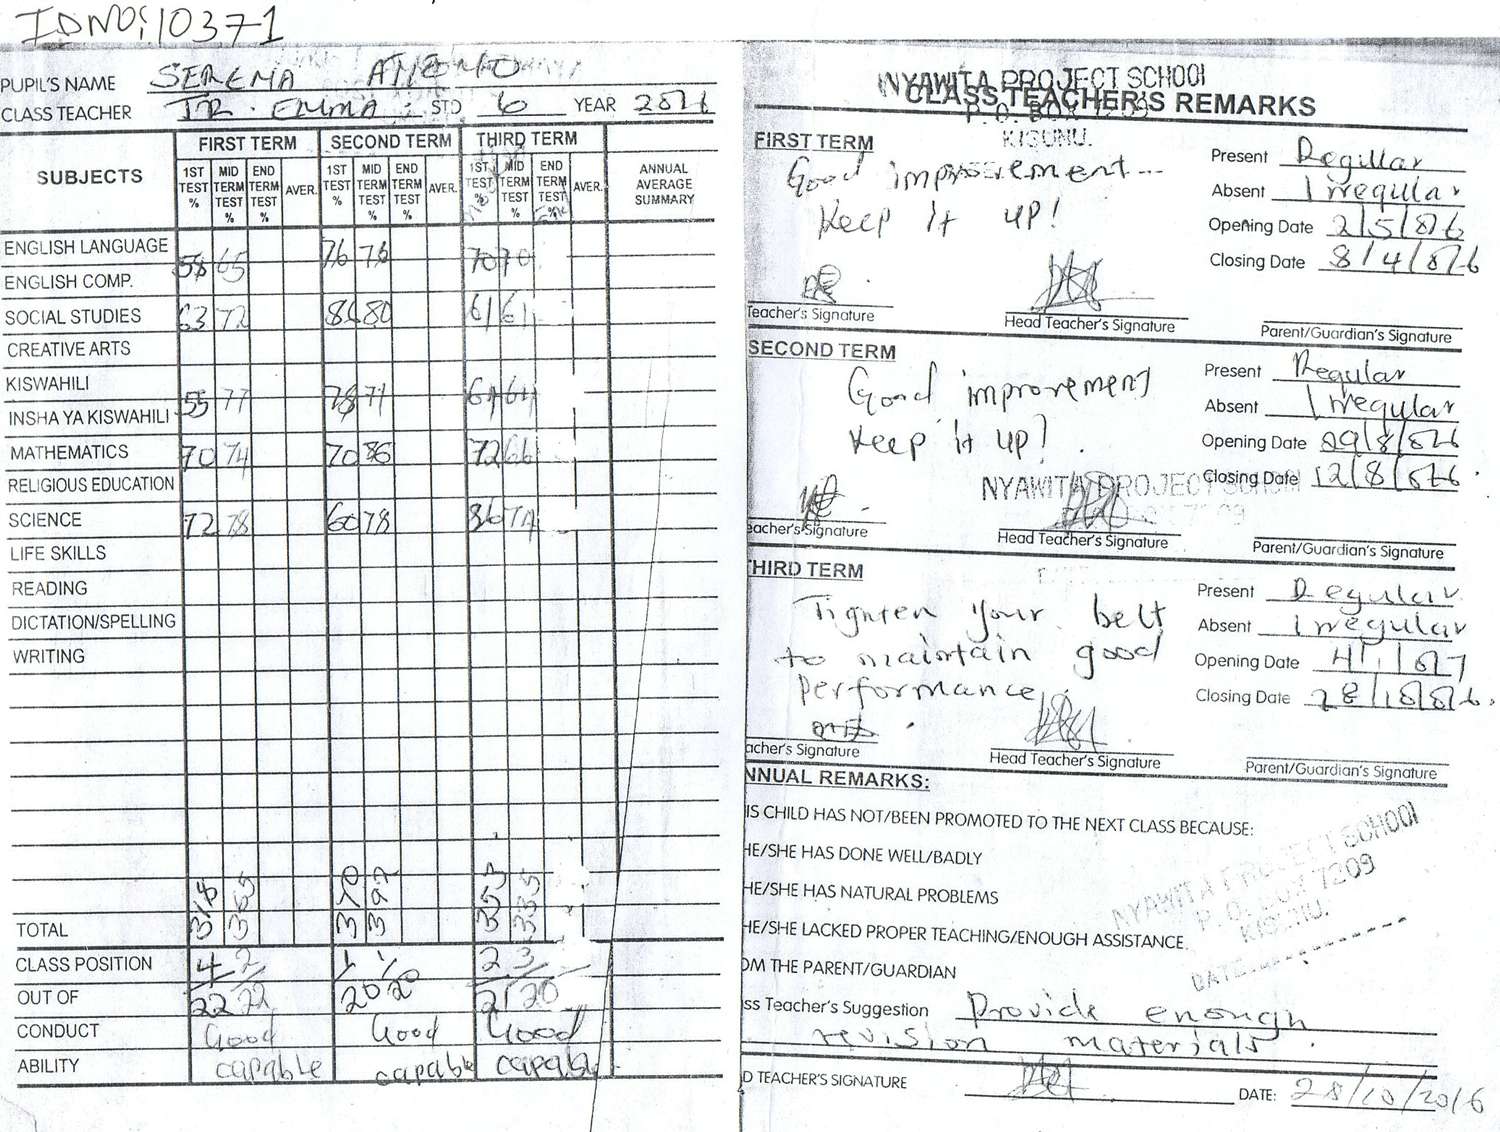 IDNO: 10371
PUPIL'S NAME SERENA
CLASS TEACHER TR. EMMA. STD 6 YEAR 2016
SUBJECTS FIRST TERM SECOND TERM THIRD TERM ANNUAL AVERAGE SUMMARY
1ST TEST % MID TERM TEST % END TERM TEST % AVER. 1ST TEST % MID TERM TEST % END TERM TEST % AVER. 1ST TEST % MID TERM TEST % END TERM TEST % AVER.
ENGLISH LANGUAGE 58 65 76 76 70 70
ENGLISH COMP.
SOCIAL STUDIES 63 72 86 80 61 61
CREATIVE ARTS
KISWAHILI 55 77 78 77 64 64
INSHA YA KISWAHILI
MATHEMATICS 70 74 70 86 72 66
RELIGIOUS EDUCATION
SCIENCE 72 78 60 78 86 74
LIFE SKILLS
READING
DICTATION/SPELLING
WRITING
TOTAL 318 365 370 397 353 335
CLASS POSITION 4 2 1 1 2 3
OUT OF 22 22 20 20 21 20
CONDUCT Good Good Good
ABILITY capable capable capable
NYAWITA PROJECT SCHOOL
CLASS TEACHER'S REMARKS
KISUMU.
FIRST TERM
Good improvement...
Keep it up!
Present Regular
Absent Irregular
Opening Date
Closing Date
Teacher's Signature Head Teacher's Signature Parent/Guardian's Signature
SECOND TERM
Good improvement
Keep it up!
Present Regular
Absent Irregular
Opening Date
Closing Date
NYAWITA PROJECT SCHOOL
eacher's Signature Head Teacher's Signature Parent/Guardian's Signature
HIRD TERM
Tighten your belt
to maintain good
performance.
Present Regular
Absent Irregular
Opening Date
Closing Date
acher's Signature Head Teacher's Signature Parent/Guardian's Signature
NNUAL REMARKS:
IS CHILD HAS NOT/BEEN PROMOTED TO THE NEXT CLASS BECAUSE:
HE/SHE HAS DONE WELL/BADLY
HE/SHE HAS NATURAL PROBLEMS
HE/SHE LACKED PROPER TEACHING/ENOUGH ASSISTANCE
OM THE PARENT/GUARDIAN
NYAWITA PROJECT SCHOOL
P.O. BOX 7209
KISUMU.
DATE
ss Teacher's Suggestion Provide enough
revision materials.
D TEACHER'S SIGNATURE DATE: 28/10/2016